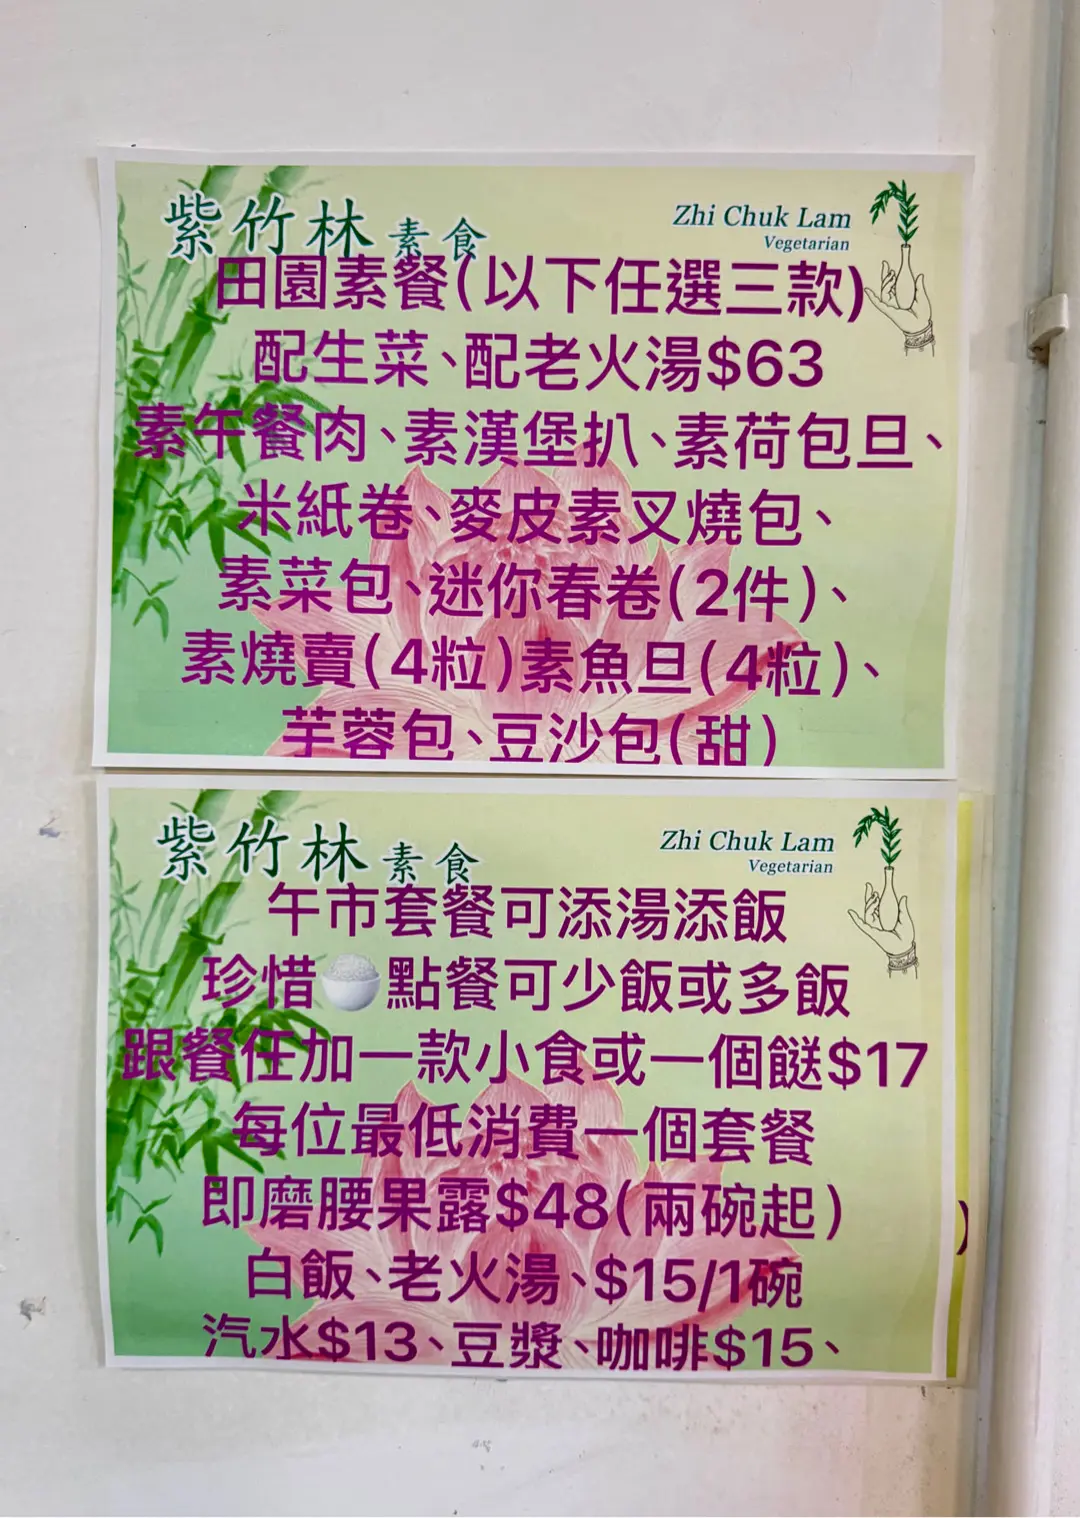 紫竹林素食
Zhi Chuk Lam
Vegetarian
田園素餐(以下任選三款)
配生菜、配老火湯$63
素午餐肉、素漢堡扒、素荷包旦、
米紙卷、麥皮素叉燒包、
素菜包、迷你春卷(2件)、
素燒賣(4粒)素魚旦(4粒)、
芋蓉包、豆沙包(甜)
紫竹林素食
Zhi Chuk Lam
Vegetarian
午市套餐可添湯添飯
珍惜🍚點餐可少飯或多飯
跟餐任加一款小食或一個餸$17
每位最低消費一個套餐
即磨腰果露$48(兩碗起)
白飯、老火湯、$15/1碗
汽水$13、豆漿、咖啡$15、
)